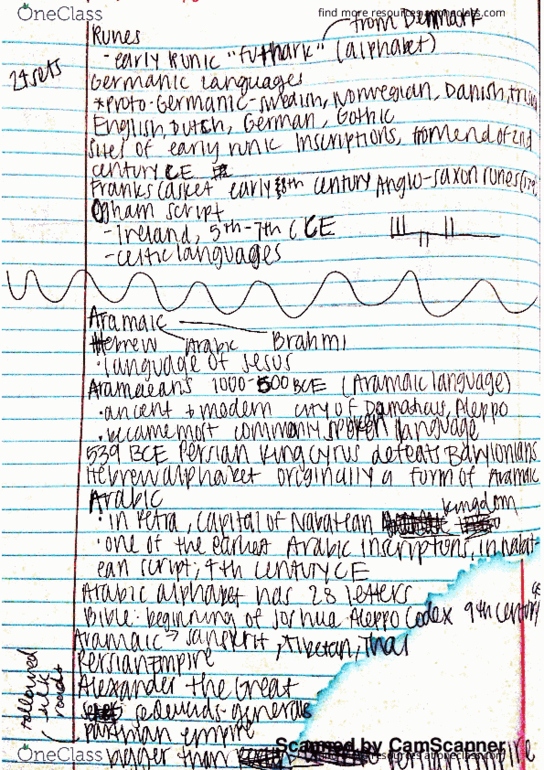 OneClass
find more resources at oneclass.com
from Denmark
Runes
- early Runic "futhark" (alphabet)
24 sets
Germanic languages
*proto-Germanic-Swedish, Norwegian, Danish,
English, Dutch, German, Gothic
Sites of early runic Inscriptions, from end of 2nd
century CE
Franks Casket early 8th century Anglo-saxon runes
Ogham script
- Ireland, 5th-7th C CE
- celtic languages
Aramaic
Hebrew Arabic Brahmi
· language of Jesus
Aramaeans 1000-500 BCE (Aramaic language)
· ancient + modern city of Damascus, Aleppo
· became most commonly spoken language
539 BCE Persian King Cyrus defeats Babylonians
Hebrew alphabet originally a form of Aramaic
Arabic
kingdom
· in Petra, capital of Nabatean
· one of the earliest Arabic inscriptions, in Nabat-
ean script, 4th century CE
Arabic alphabet has 28 letters
Bible: beginning of Joshua Aleppo Codex 9th century
Aramaic → sanskrit, Tibetan, Thai
Persian Empire
Alexander the Great
generals
parthian empire
followed silk roads
bigger than
Scanned by CamScanner
OneClass
find more resources at oneclass.com